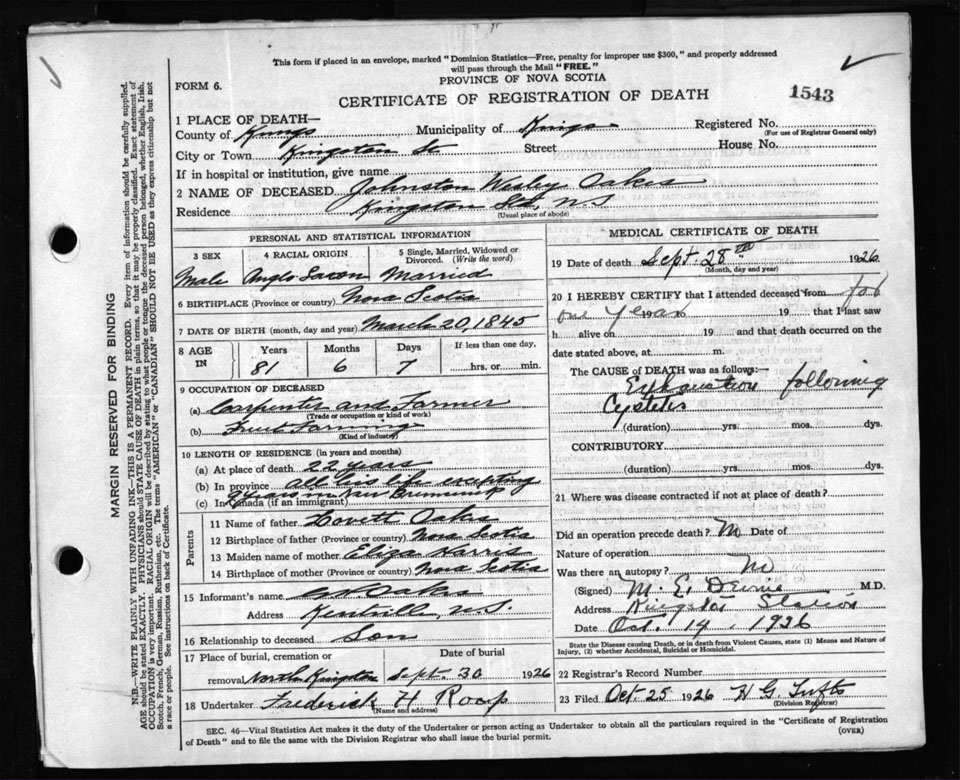 This form if placed in an envelope, marked "Dominion Statistics—Free, penalty for improper use $300," and properly addressed
will pass through the Mail "FREE."
PROVINCE OF NOVA SCOTIA
FORM 6.
CERTIFICATE OF REGISTRATION OF DEATH
1543
1 PLACE OF DEATH—
County of Kings Municipality of Kings Registered No.
(For use of Registrar General only)
City or Town Kingston St Street House No.
If in hospital or institution, give name
2 NAME OF DECEASED Johnston Wesley Oakes
Residence Kingston Sta, N.S
(Usual place of abode)
PERSONAL AND STATISTICAL INFORMATION
3 SEX 4 RACIAL ORIGIN 5 Single, Married, Widowed or Divorced. (Write the word)
Male Anglo Saxon Married
6 BIRTHPLACE (Province or country) Nova Scotia
7 DATE OF BIRTH (month, day and year) March 20, 1845
8 AGE IN Years Months Days If less than one day,
81 6 7 hrs. or min.
9 OCCUPATION OF DECEASED
(a) Carpenter and Farmer
(Trade or occupation or kind of work)
(b) Fruit Farming
(Kind of industry)
10 LENGTH OF RESIDENCE (in years and months)
(a) At place of death 22 years
(b) In province all his life excepting
9 years in New Brunswick
(c) In Canada (if an immigrant)
Parents
11 Name of father Lovett Oakes
12 Birthplace of father (Province or country) Nova Scotia
13 Maiden name of mother Eliza Harris
14 Birthplace of mother (Province or country) Nova Scotia
15 Informant's name Oakes
Address Kentville, N.S.
16 Relationship to deceased Son
17 Place of burial, cremation or Date of burial
removal North Kingston Sept. 30 1926
18 Undertaker Frederick H Roop
(Name and address)
MEDICAL CERTIFICATE OF DEATH
19 Date of death Sept. 28th 1926
(Month, day and year)
20 I HEREBY CERTIFY that I attended deceased from for
one year 19 to 19 that I last saw
h alive on 19 and that death occurred on the
date stated above, at m.
The CAUSE of DEATH was as follows:—
Exhaustion following
Cystitis
(duration) yrs. mos. dys.
CONTRIBUTORY
(duration) yrs. mos. ds.
21 Where was disease contracted if not at place of death?
Did an operation precede death? No Date of
Nature of operation
Was there an autopsy? No
(Signed) M. E. M.D.
Address Kingston Station
Date Oct. 14, 1926
State the Disease causing Death, or in death from Violent Causes, state (1) Means and Nature of
Injury, (2) whether Accidental, Suicidal or Homicidal.
22 Registrar's Record Number
23 Filed Oct. 25 1926 H G Tufts
(Division Registrar)
SEC. 46—Vital Statistics Act makes it the duty of the Undertaker or person acting as Undertaker to obtain all the particulars required in the "Certificate of Registration
of Death" and to file the same with the Division Registrar who shall issue the burial permit.
(OVER)
MARGIN RESERVED FOR BINDING
N.B.—WRITE PLAINLY WITH UNFADING INK—THIS IS A PERMANENT RECORD. Every item of information should be carefully supplied.
AGE should be stated EXACTLY. PHYSICIANS should STATE CAUSE OF DEATH in plain terms, so that it may be properly classified. Exact statement of
OCCUPATION is very important. RACIAL ORIGIN will be described by stating to what people or tongue the deceased person belonged, whether English, Irish,
Scotch, French, German, Russian, Ruthenian, etc. The terms "AMERICAN" or "CANADIAN" SHOULD NOT BE USED as they express citizenship but not
a race or people. See instructions on back of Certificate.